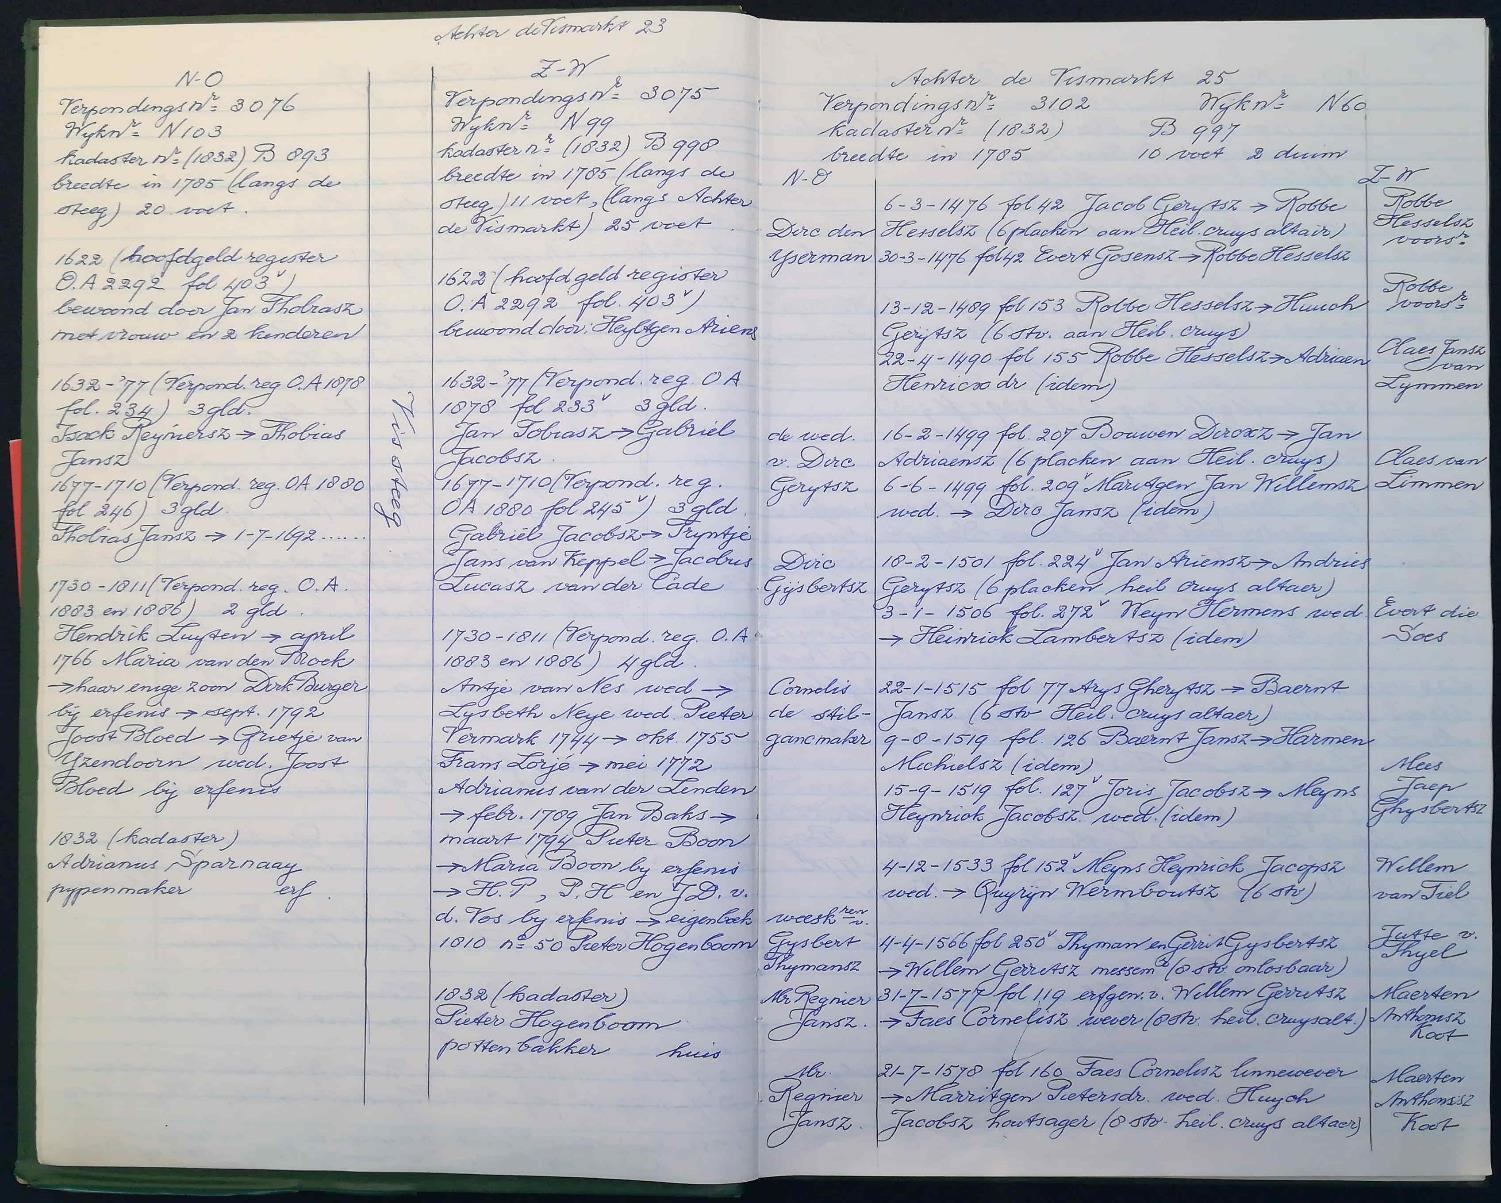 Achter de Vismarkt 23
N-O
Verpondingsnr. 3076
Wyknr. N103
kadasternr. (1832) B 893
breedte in 1785 (langs de
steeg) 20 voet.
1622 (hoofdgeld register
O.A 2292 fol 403v)
bewoond door Jan Thobiasz
met vrouw en 2 kinderen
1632-'77 (Verpond. reg O.A 1878
fol. 234) 3 gld.
Isack Reyniersz → Thobias
Jansz
1677-1710 (Verpond. reg. OA 1880
fol 246) 3 gld.
Thobias Jansz → 1-7-1692......
1730-1811 (Verpond. reg. O.A.
1883 en 1886) 2 gld.
Hendrik Luyten → april
1766 Maria van den Broek
→ haar enige zoon Dirk Burger
bij erfenis → sept. 1792
Joost Bloed → Grietje van
Yzendoorn wed. Joost
Bloed bij erfenis
1832 (kadaster)
Adrianus Sparnaay
pypenmaker erf.
Vissteeg
Z-W
Verpondingsnr. 3075
Wyknr. N99
kadasternr. (1832) B 998
breedte in 1785 (langs de
steeg) 11 voet, (langs Achter
de Vismarkt) 25 voet.
1622 (hoofdgeld register
O.A 2292 fol. 403v)
bewoond door: Heyltgen Ariens
1632-'77 (Verpond. reg. OA
1878 fol 233v 3 gld.
Jan Tobiasz → Gabriel
Jacobsz.
1677-1710 (Verpond. reg.
OA 1880 fol 245v) 3 gld.
Gabriel Jacobsz → Tryntje
Jans van Keppel → Jacobus
Lucasz van der Cade
1730-1811 (Verpond. reg. O.A
1883 en 1886) 4 gld.
Antje van Nes wed →
Lysbeth Neye wed. Pieter
Vermark 1744 → okt. 1755
Frans Lorje → mei 1772
Adrianus van der Linden
→ febr. 1789 Jan Baks →
maart 1794 Pieter Boon
→ Maria Boon by erfenis
→ H.P, P.H en J.D. v.
d. Vos by erfenis → eigenboek
1810 no 50 Pieter Hogenboom
1832 (kadaster)
Pieter Hogenboom
pottenbakker huis
Achter de Vismarkt 25
Verpondingsnr. 3102 Wyknr. N60
kadasternr. (1832) B 997
breedte in 1785 10 voet 2 duim
N-O
Z-W
6-3-1476 fol 42 Jacob Gerytsz → Robbe
Robbe
Dirc den
Hesselsz (6 placken aan Heil. cruys altair)
Hesselsz
voorsr.
Yserman
30-3-1476 fol 42 Evert Gosensz → Robbe Hesselsz
Robbe
13-12-1489 fol 153 Robbe Hesselsz → Huuch
voorsr.
Gerytsz (6 stv. aan Heil. cruys)
22-4-1490 fol 155 Robbe Hesselsz → Adriaen
Claes Jansz
van
Henricxdr (idem)
Lymmen
de wed.
16-2-1499 fol. 207 Bouwen Dircxz → Jan
v. Dirc
Adriaensz (6 placken aan Heil. cruys)
Claes van
Gerytsz
6-6-1499 fol. 209v Maritgen Jan Willemsz
Limmen
wed. → Dirc Jansz (idem)
Dirc
18-2-1501 fol. 224v Jan Ariensz → Andries
Gijsbertsz
Gerytsz (6 placken heil cruys altaer)
3-1-1506 fol. 272v Weyn Hermens wed
Evert die
→ Heinrick Lambertsz (idem)
Soes
Cornelis
22-1-1515 fol 77 Arys Gherytsz → Baernt
de stil-
Jansz (6 stv Heil. cruys altaer)
gancmaker
9-8-1519 fol. 126 Baernt Jansz → Harmen
Michielsz (idem)
Mees
15-9-1519 fol. 127v Joris Jacobsz → Meyns
Jaep
Heynrick Jacobsz. wed. (idem)
Ghysbertsz
4-12-1533 fol 152v Meyns Heynrick Jacopsz
Willem
wed. → Quyryn Wermboutsz (6 stv)
van Tiel
weeskren v.
Gysbert
4-4-1566 fol 250v Thyman en Gerrit Gysbertsz
Jutte v.
Thyel
Thymansz
→ Willem Gerritsz messem (8 stv onlosbaar)
Mr Regnier
31-7-1577 fol 119 erfgen. v. Willem Gerritsz
Maerten
Jansz.
→ Faes Cornelisz wever (8 stv. heil. cruysalt.)
Anthonisz
Koot
Mr.
21-7-1578 fol 160 Faes Cornelisz linnewever
Maerten
Regnier
→ Marritgen Pietersdr. wed. Huych
Anthonisz
Jansz.
Jacobsz houtsager (8 stv. heil. cruys altaer)
Koot